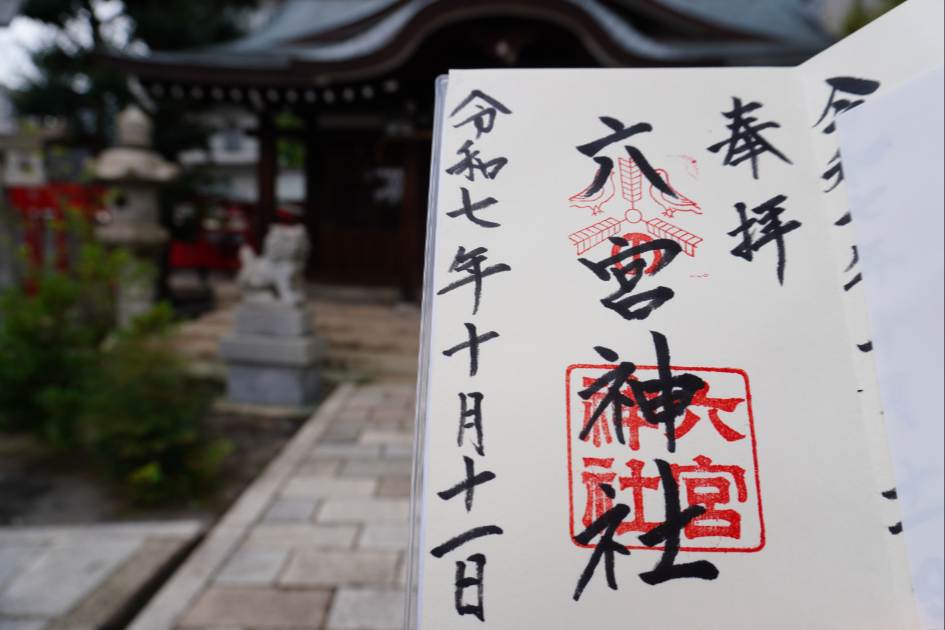 奉拝
六宮神社
六宮
神社
令和七年十月十一日